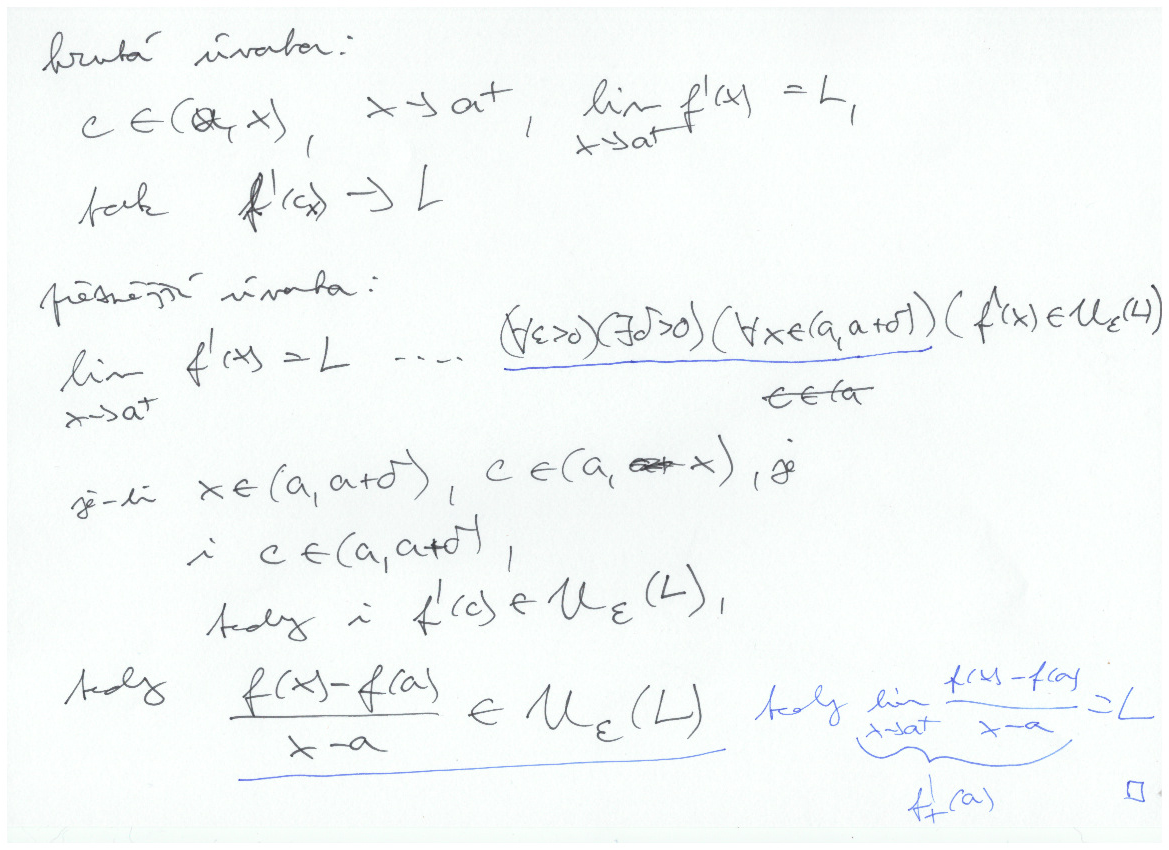 hrubá úvaha:
c ∈ (a, x), x → a⁺, lim f'(x) = L,
x→a⁺
tak f'(cₓ) → L
přesnější úvaha:
lim f'(x) = L .... (∀ε>0)(∃δ>0)(∀x∈(a, a+δ))(f'(x) ∈ U_ε(L))
x→a⁺
c ∈ (a
je-li x ∈ (a, a+δ), c ∈ (a, x), je
i c ∈ (a, a+δ),
tedy i f'(c) ∈ U_ε(L),
tedy (f(x)-f(a))/(x-a) ∈ U_ε(L) tedy lim_{x→a⁺} (f(x)-f(a))/(x-a) = L
f'₊(a) □